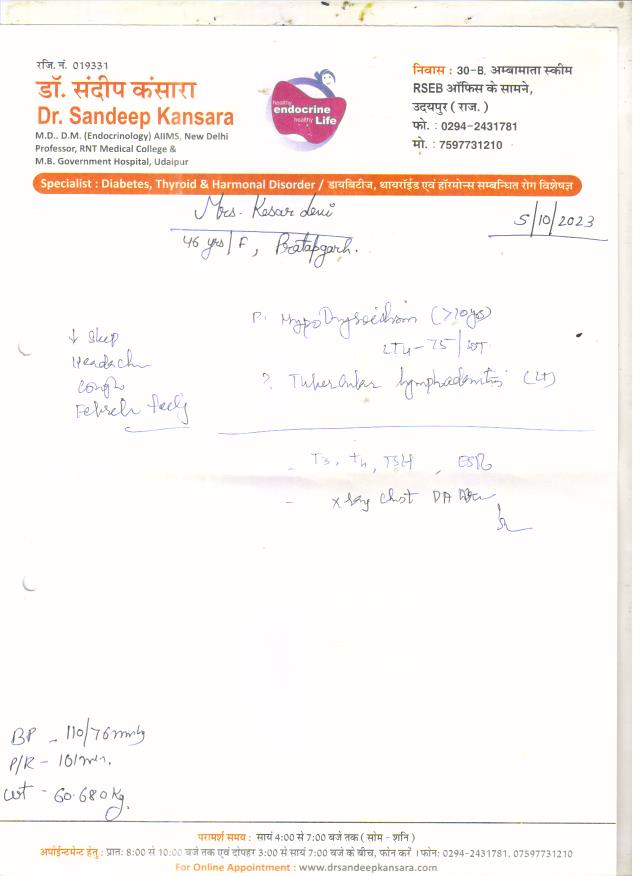 रजि. नं. 019331
डॉ. संदीप कंसारा
Dr. Sandeep Kansara
M.D.. D.M. (Endocrinology) AIIMS, New Delhi
Professor, RNT Medical College &
M.B. Government Hospital, Udaipur
healthy
endocrine
healthy Life
निवास : 30-B, अम्बामाता स्कीम
RSEB ऑफिस के सामने,
उदयपुर ( राज. )
फो. : 0294-2431781
मो. : 7597731210
Specialist : Diabetes, Thyroid & Harmonal Disorder / डायबिटीज, थायरॉईड एवं हॉरमोन्स सम्बन्धित रोग विशेषज्ञ
Mrs. Kesar devi
5/10/2023
46 yrs/F, Pratapgarh.
↓ Sleep
Headache
Cough
P. Hypothyroidism (>10yrs)
LT4-75/
?. Tubercular lymphadenitis (Lt)
- T3, T4, TSH, ESR
- X ray chest PA
BP - 110/76 mmHg
P/R - 101min.
wt - 60.680 Kg.
परामर्श समय : सायं 4:00 से 7:00 बजे तक ( सोम - शनि )
अपोईन्टमेन्ट हेतु : प्रातः 8:00 से 10:00 बजे तक एवं दोपहर 3:00 से सायं 7:00 बजे के बीच, फोन करें । फोनः 0294-2431781, 07597731210
For Online Appointment : www.drsandeepkansara.com